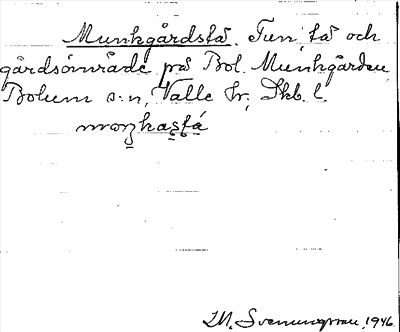 Munkgårdsfå. Tun, få och
gårdsområde på Bol. Munkgården,
Bolum s:n, Valle hr; Skb. l.
M. Svenungsson, 1946.